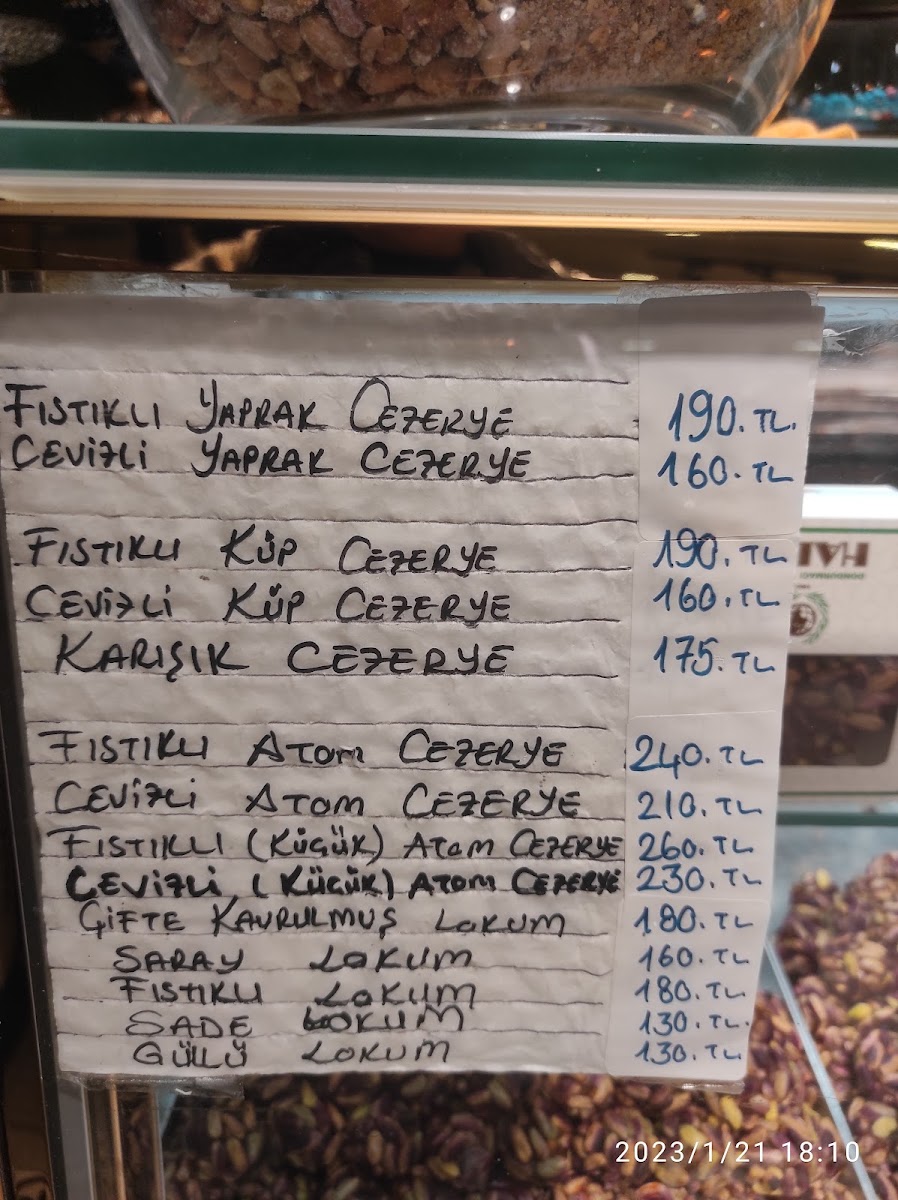 FISTIKLI YAPRAK CEZERYE 190.TL.
CEVİZLİ YAPRAK CEZERYE 160.TL
FISTIKLI KÜP CEZERYE 190.TL
CEVİZLİ KÜP CEZERYE 160.TL
KARIŞIK CEZERYE 175.TL
FISTIKLI ATOM CEZERYE 240.TL
CEVİZLİ ATOM CEZERYE 210.TL
FISTIKLI (KÜÇÜK) ATOM CEZERYE 260.TL
CEVİZLİ (KÜÇÜK) ATOM CEZERYE 230.TL
ÇİFTE KAVRULMUŞ LOKUM 180.TL
SARAY LOKUM 160.TL
FISTIKLI LOKUM 180.TL
SADE LOKUM 130.TL.
GÜLLÜ LOKUM 130.TL
2023/1/21 18:10